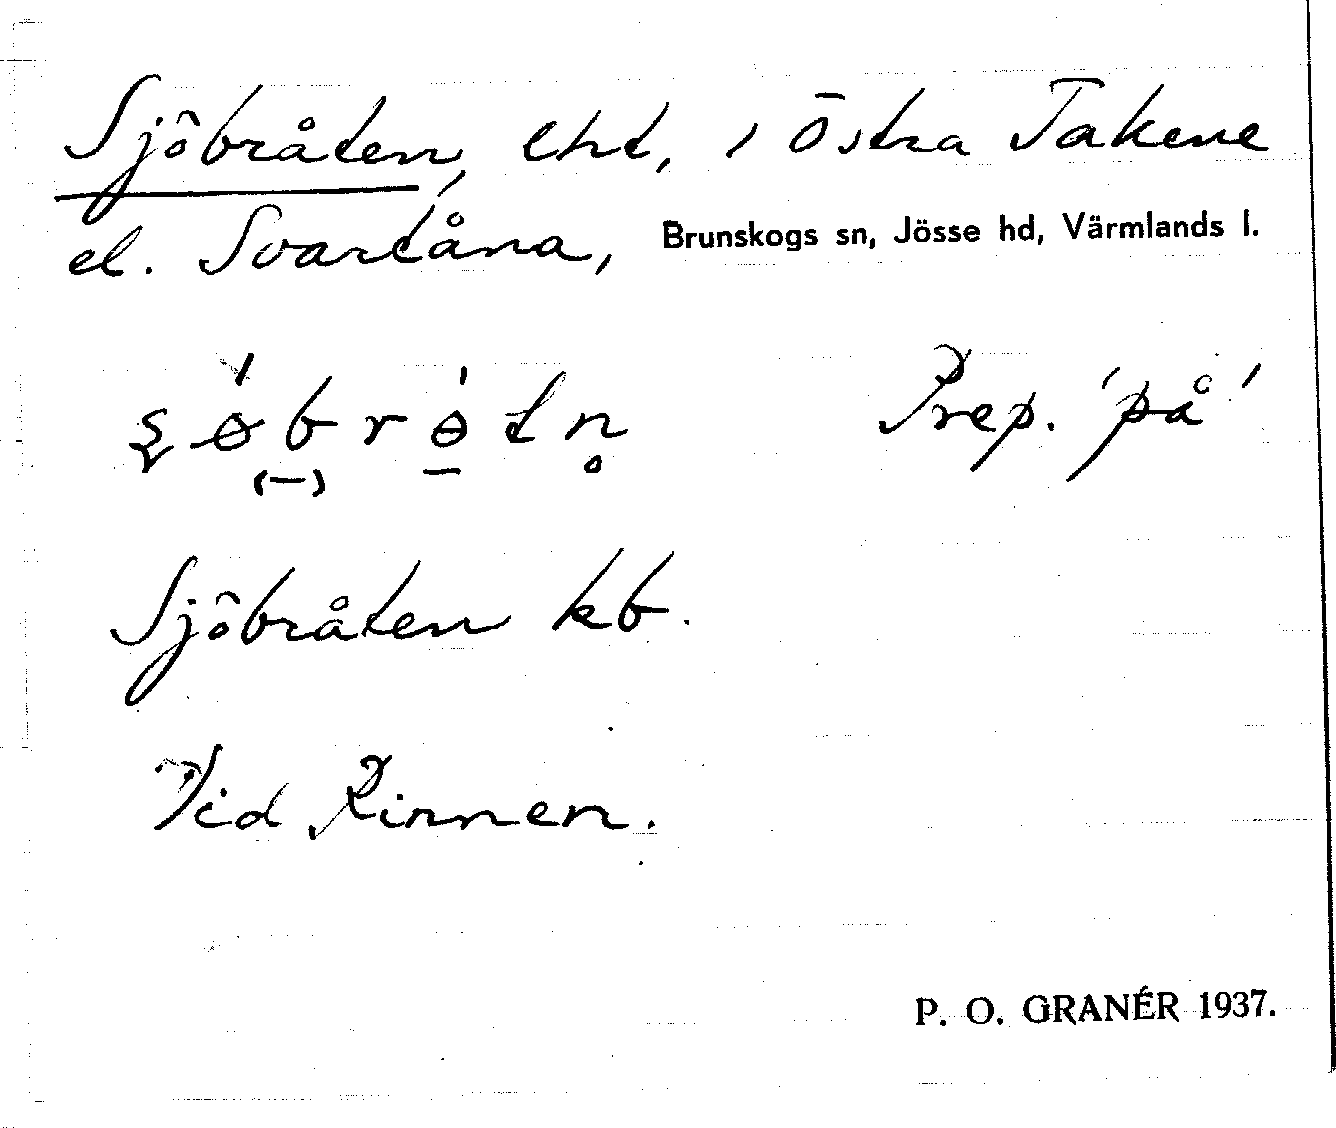 Sjöbråten, lht, i Östra Takene
el. Svartåna, Brunskogs sn, Jösse hd, Värmlands l.
Prep. 'på'
Sjöbråten kb.
Vid Rinnen.
P. O. GRANÉR 1937.